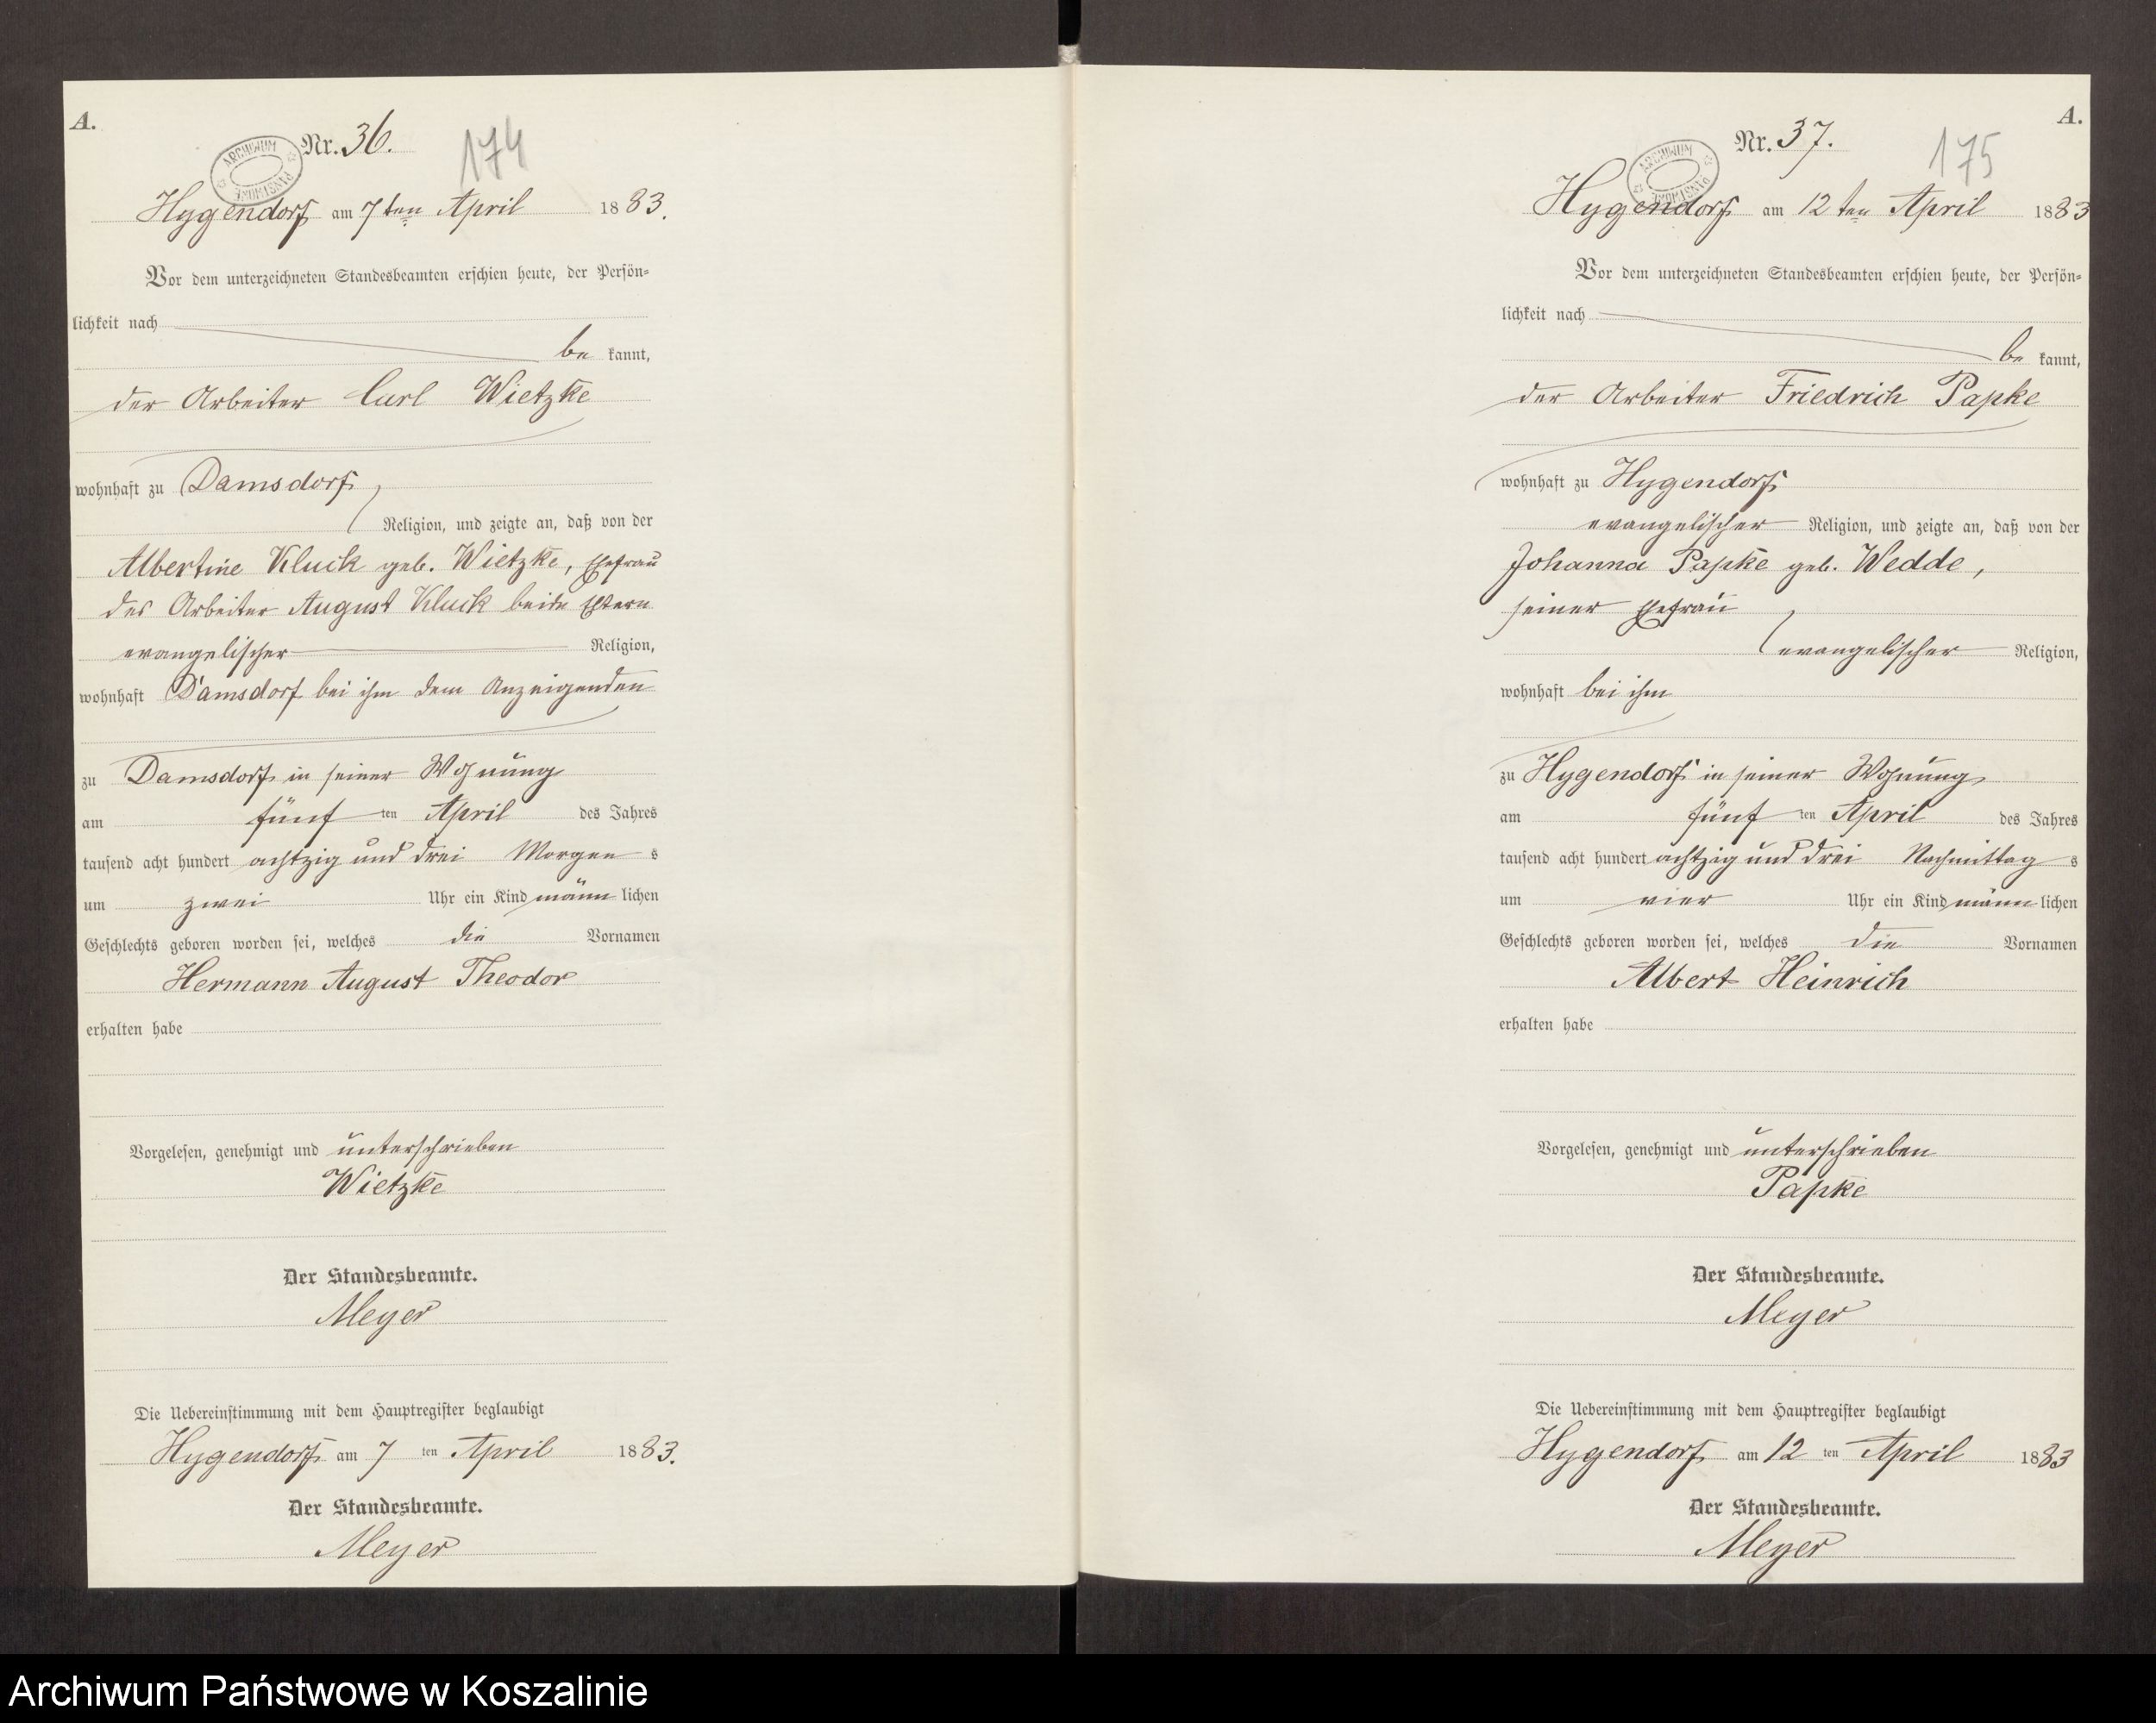 A.
Nr. 36.
174
ARCHIWUM PAŃSTWOWE
Hygendorf am 7ten April 1883.
Vor dem unterzeichneten Standesbeamten erschien heute, der Persön-
lichkeit nach
be kannt,
der Arbeiter Carl Wietzke
wohnhaft zu Damsdorf
Religion, und zeigte an, daß von der
Albertine Kluck geb. Wietzke, Ehefrau
des Arbeiter August Kluck beide Eltern
evangelischer Religion,
wohnhaft Damsdorf bei ihm dem Anzeigenden
zu Damsdorf in seiner Wohnung
am fünf ten April des Jahres
tausend acht hundert achtzig und drei Morgen s
um zwei Uhr ein Kind männ lichen
Geschlechts geboren worden sei, welches die Vornamen
Hermann August Theodor
erhalten habe
Vorgelesen, genehmigt und unterschrieben
Wietzke
Der Standesbeamte.
Meyer
Die Uebereinstimmung mit dem Hauptregister beglaubigt
Hygendorf am 7 ten April 1883.
Der Standesbeamte.
Meyer
A.
Nr. 37.
175
ARCHIWUM PAŃSTWOWE
Hygendorf am 12ten April 1883
Vor dem unterzeichneten Standesbeamten erschien heute, der Persön-
lichkeit nach
be kannt,
der Arbeiter Friedrich Papke
wohnhaft zu Hygendorf
evangelischer Religion, und zeigte an, daß von der
Johanna Papke geb. Wedde,
seiner Ehefrau
evangelischer Religion,
wohnhaft bei ihm
zu Hygendorf in seiner Wohnung
am fünf ten April des Jahres
tausend acht hundert achtzig und drei Nachmittag s
um vier Uhr ein Kind männ lichen
Geschlechts geboren worden sei, welches die Vornamen
Albert Heinrich
erhalten habe
Vorgelesen, genehmigt und unterschrieben
Papke
Der Standesbeamte.
Meyer
Die Uebereinstimmung mit dem Hauptregister beglaubigt
Hygendorf am 12 ten April 1883
Der Standesbeamte.
Meyer
Archiwum Państwowe w Koszalinie